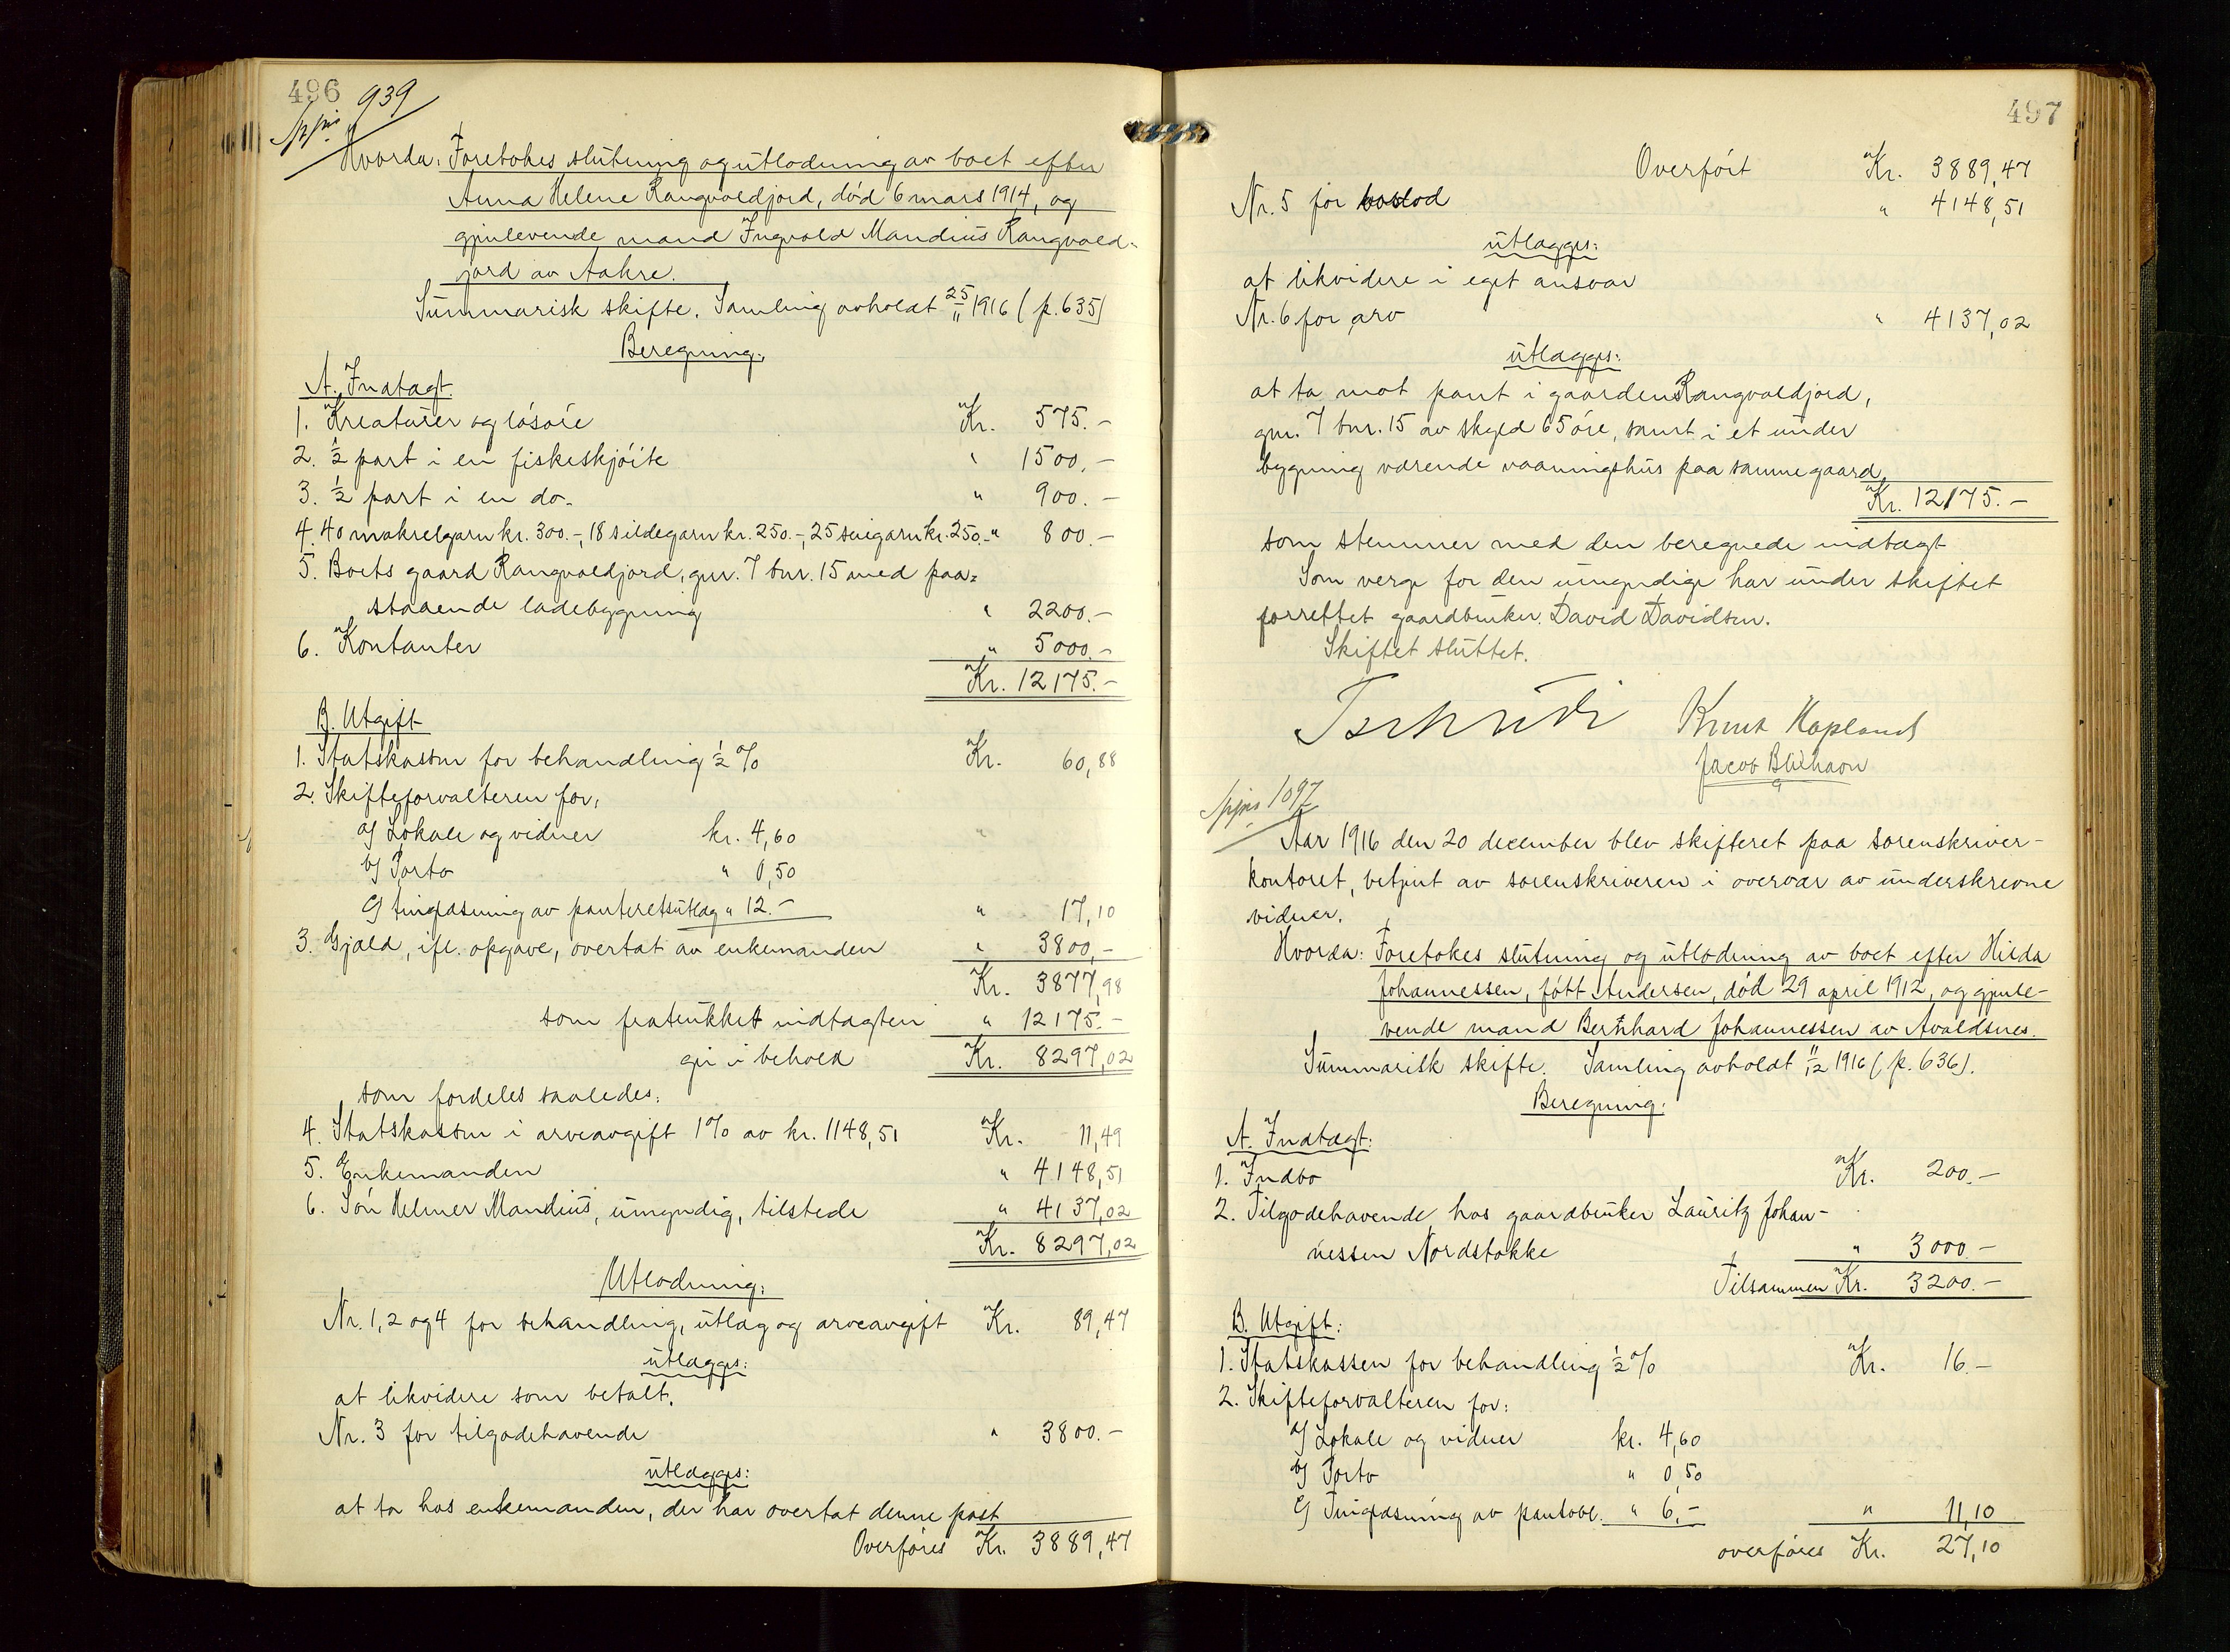 496
939
Hvorda: Foretokes slutning og utlodning av boet efter
Anna Helene Rangvaldjord, død 6 mars 1914, og
gjenlevende mand Ingvald Mandius Rangvald-
jord av Aakre.
Summarisk skifte. Samling avholdt 25/11 1916 (p. 635)
Beregning:
A. Indtægt.
1. Kreaturer og løsøre Kr. 575.-
2. ½ part i en fiskeskjøite " 1500.-
3. ½ part i en do. " 900.-
4. 40 makrelgarn kr. 300.-, 18 sildegarn kr. 250.-, 25 seigarn kr. 250.- " 800.-
5. Boets gaard Rangvaldjord, gnr. 7 bnr. 15 med paa=
staaende ladebygning " 2200.-
6. Kontanter " 5000.-
Kr. 12175.-
B. Utgift
1. Statskassen for behandling ½ % Kr. 60,88
2. Skifteforvalteren for:
a) Lokale og vidner kr. 4,60
b) Porto " 0,50
c) tinglæsning av panteretsutlæg " 12.- " 17,10
3. Gjæld, ifl. opgave, overtat av enkemanden " 3800,-
Kr. 3877,98
som fratrukket indtægten " 12175.-
gir i behold Kr. 8297,02
som fordeles saaledes:
4. Statskassen i arveavgift 1% av kr. 1148,51 Kr. 11,49
5. Enkemanden " 4148,51
6. Søn Helmer Mandius, umyndig, tilstede " 4137,02
Kr. 8297,02
Utlodning:
Nr. 1, 2 og 4 for behandling, utlæg og arveavgift Kr. 89,47
utlægges:
at likvidere som betalt.
Nr. 3 for tilgodehavende " 3800.-
utlægges:
at ta hos enkemanden, der har overtat denne post
Overføres Kr. 3889,47
497
Overført Kr. 3889,47
Nr. 5 for boslod " 4148,51
utlægges:
at likvidere i eget ansvar
Nr. 6 for arv " 4137,02
utlægges:
at ta mot pant i gaarden Rangvaldjord,
gnr. 7 bnr. 15 av skyld 65 øre, samt i et under
bygning værende vaaningshus paa samme gaard,
Kr. 12175.-
som stemmer med den beregnede indtægt
Som verge for den umyndige har under skiftet
forrettet gaardbruker David Davidsen.
Skiftet sluttet.
Tschudi Knut Hapland
Jacob
1097
Aar 1916 den 20 december blev skifteret paa sorenskriver-
kontoret, betjent av sorenskriveren i overvær av underskrevne
vidner.
Hvorda: Foretokes slutning og utlodning av boet efter Hilda
Johannessen, født Andersen, død 29 april 1912, og gjenle-
vende mand Bernhard Johannessen av Avaldsnes.
Summarisk skifte. Samling avholdt 11/12 1916 (p. 636).
Beregning:
A. Indtægt:
1. Indbo Kr. 200.-
2. Tilgodehavende hos gaardbruker Lauritz Johan-
nessen Nordstokke " 3000.-
Tilsammen Kr. 3200.-
B. Utgift:
1. Statskassen for behandling ½ % Kr. 16.-
2. Skifteforvalteren for:
a) Lokale og vidner kr. 4,60
b) Porto " 0,50
c) Tinglæsning av pantobl. " 6,- " 11,10
overføres Kr. 27,10